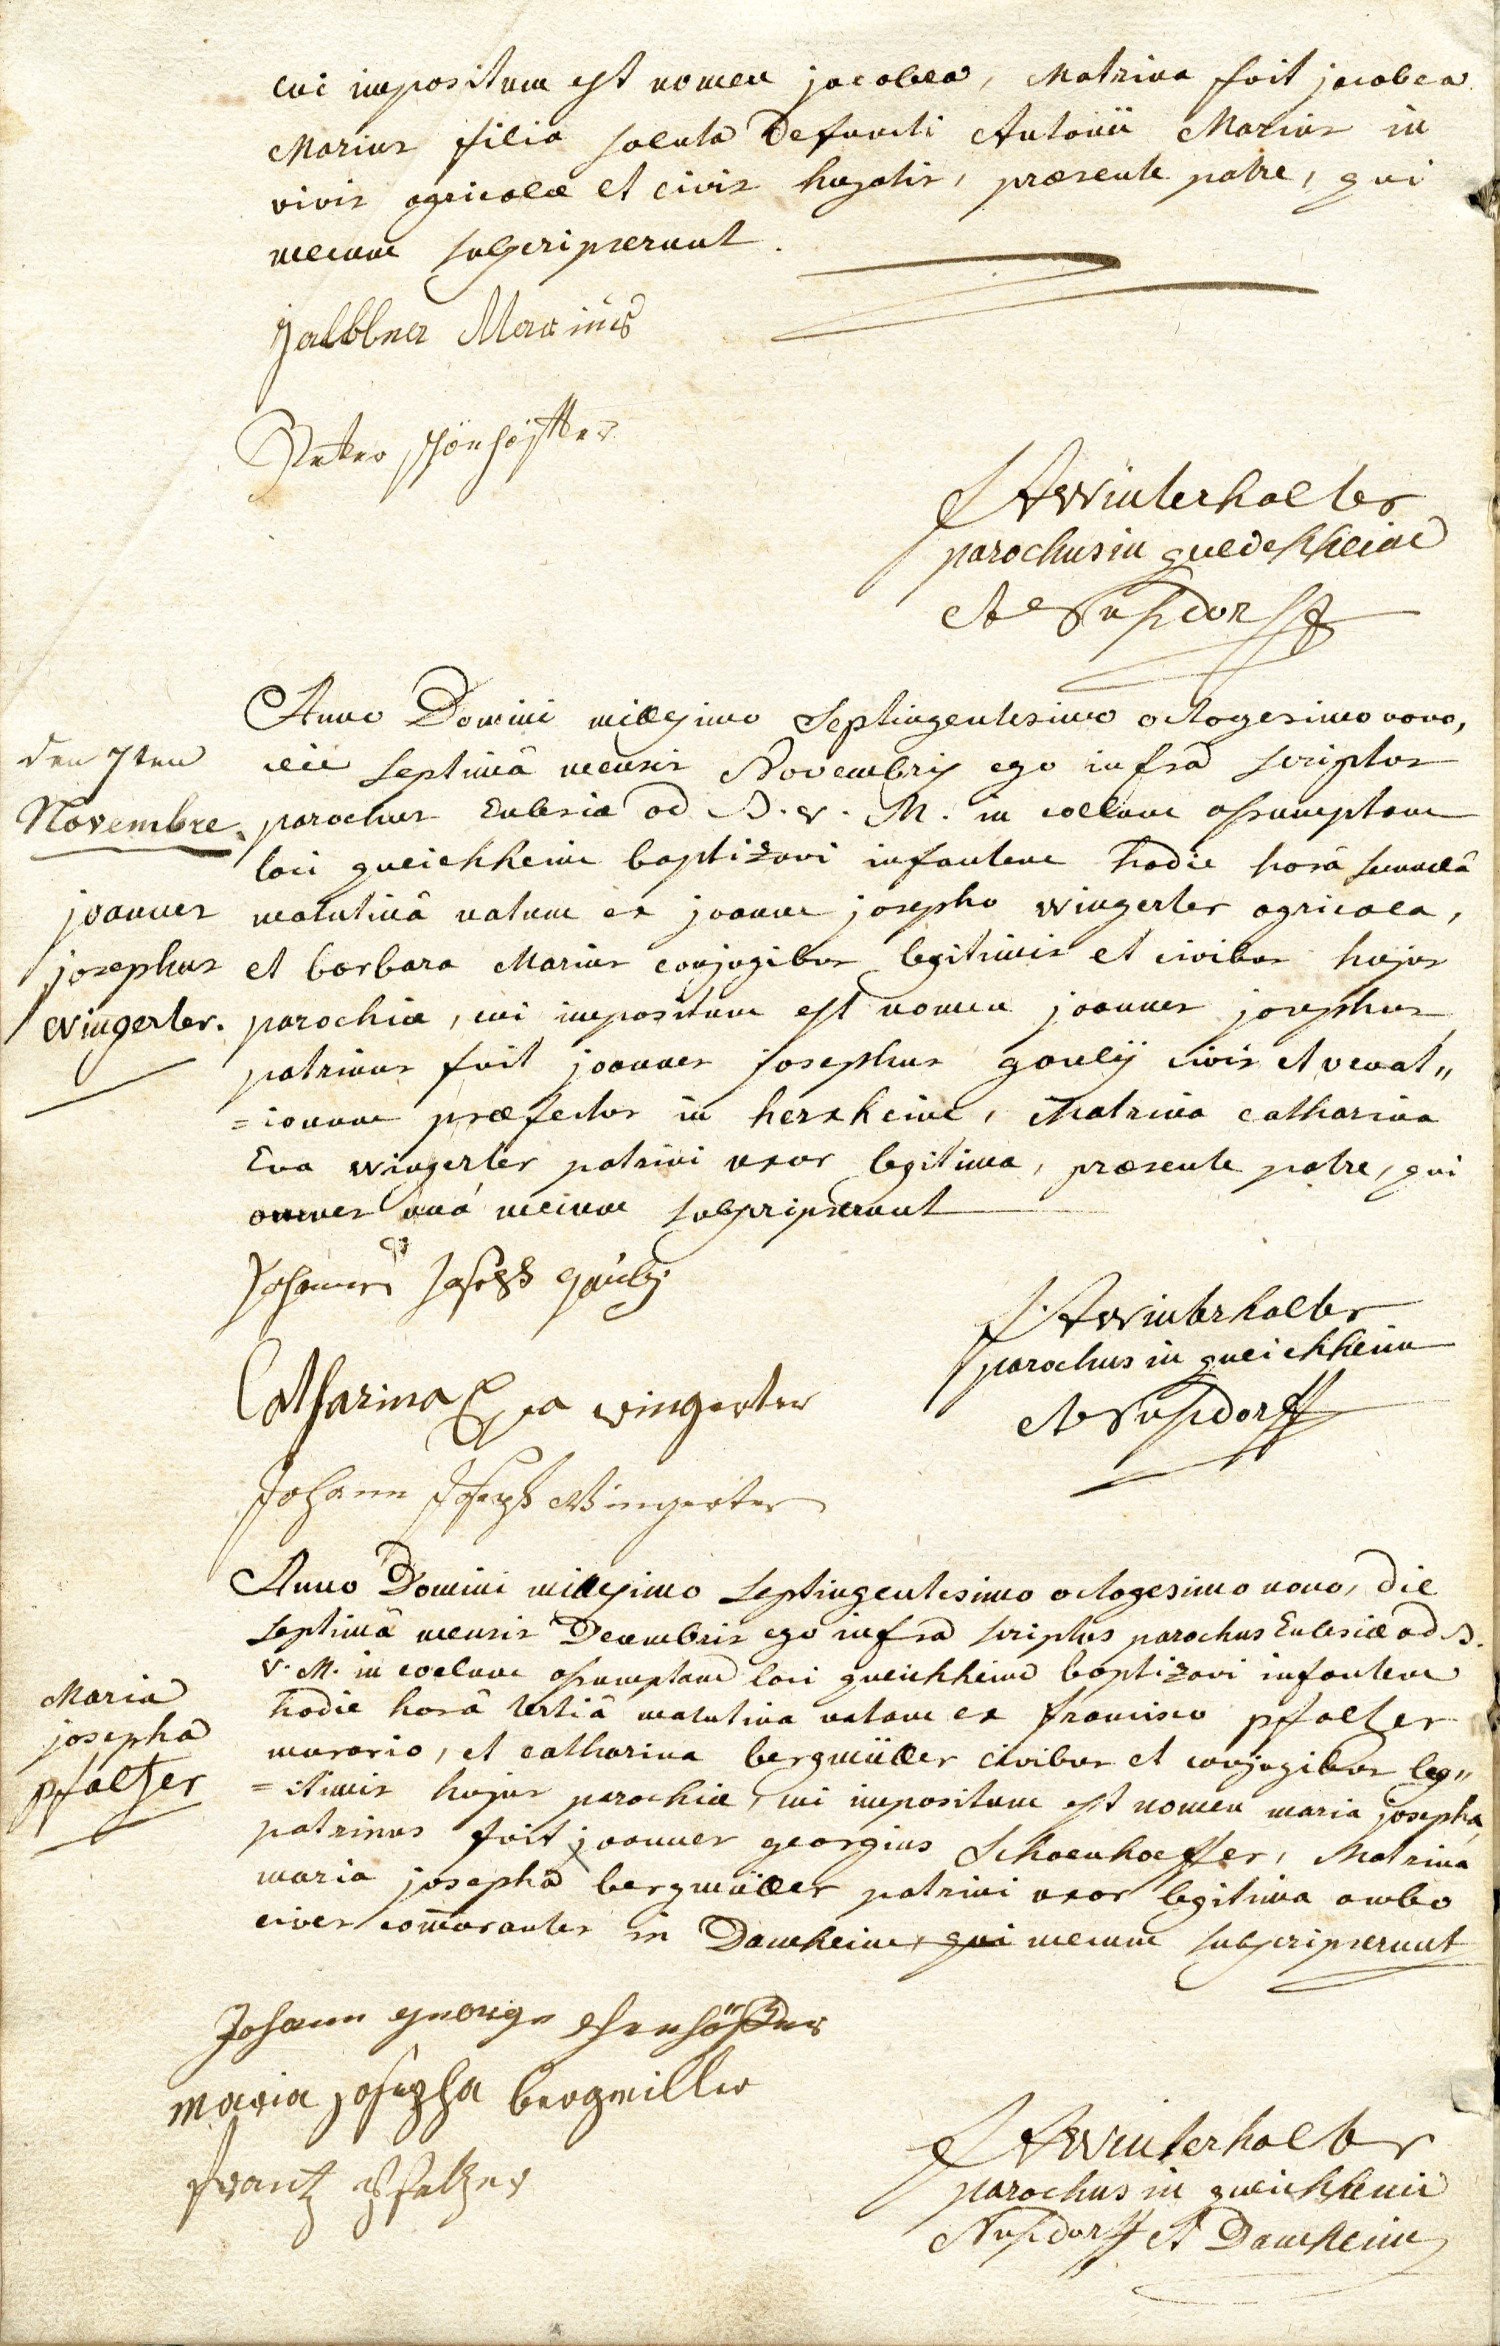 cui impositum est nomen jacobea, Matrina fuit jacobea
Marius filia soluta Defuncti Antonii Marius in
vivis agricolæ et civis hujatis, præsente patre, qui
mecum subscripserunt.
Marius
Peter schönhöffer
FA Winterholter
parochus in queichheim
et Nusdorff
Anno Domini millesimo septingentesimo octogesimo nono,
den 7ten
Novembre.
die septimâ mensis Novembris ego infra scriptus
parochus Ecclesiæ ad B. V. M. in coelum assumptam
loci queichheim baptizavi infantem hodie horâ secundâ
joannes
josephus
Wingerter.
matutinâ natum ex joanne josepho Wingerter agricola,
et barbara Marius conjugibus legitimis et civibus hujus
parochiæ, cui impositum est nomen joannes josephus
patrinus fuit joannes josephus gauly civis et venat„
=ionum præfectus in herxheim, Matrina catharina
Eva Wingerter patrini uxor legitima, præsente patre, qui
omnes unâ mecum subscripserunt
Johannes Joseph gauly
Catharina Eva wingerter
Johann Joseph Wingerter
F. A Winterholter
parochus in queichheim
et Nusdorff
Anno Domini millesimo septingentesimo octogesimo nono, die
septimâ mensis Decembris ego infra scriptus parochus Ecclesiæ ad B.
V. M. in coelum assumptam loci queichheim baptizavi infantem
Maria
josepha
pfaltzer
hodie horâ tertiâ matutina natam ex francisco pfaltzer
murario, et catharina bergmüller civibus et conjugibus leg„
=itimis hujus parochiæ, cui impositum est nomen maria josepha,
patrinus fuit joannes georgius Schoenhoeffer, Matrina
maria josepha bergmüller patrini uxor legitima ambo
cives comorantes in Damheim, qui mecum subscripserunt
Johann george schenhöffer
maria josepha bergmiller
frantz Pfaltzer
FA Winterholter
parochus in queichheim
Nusdorff et Damheim